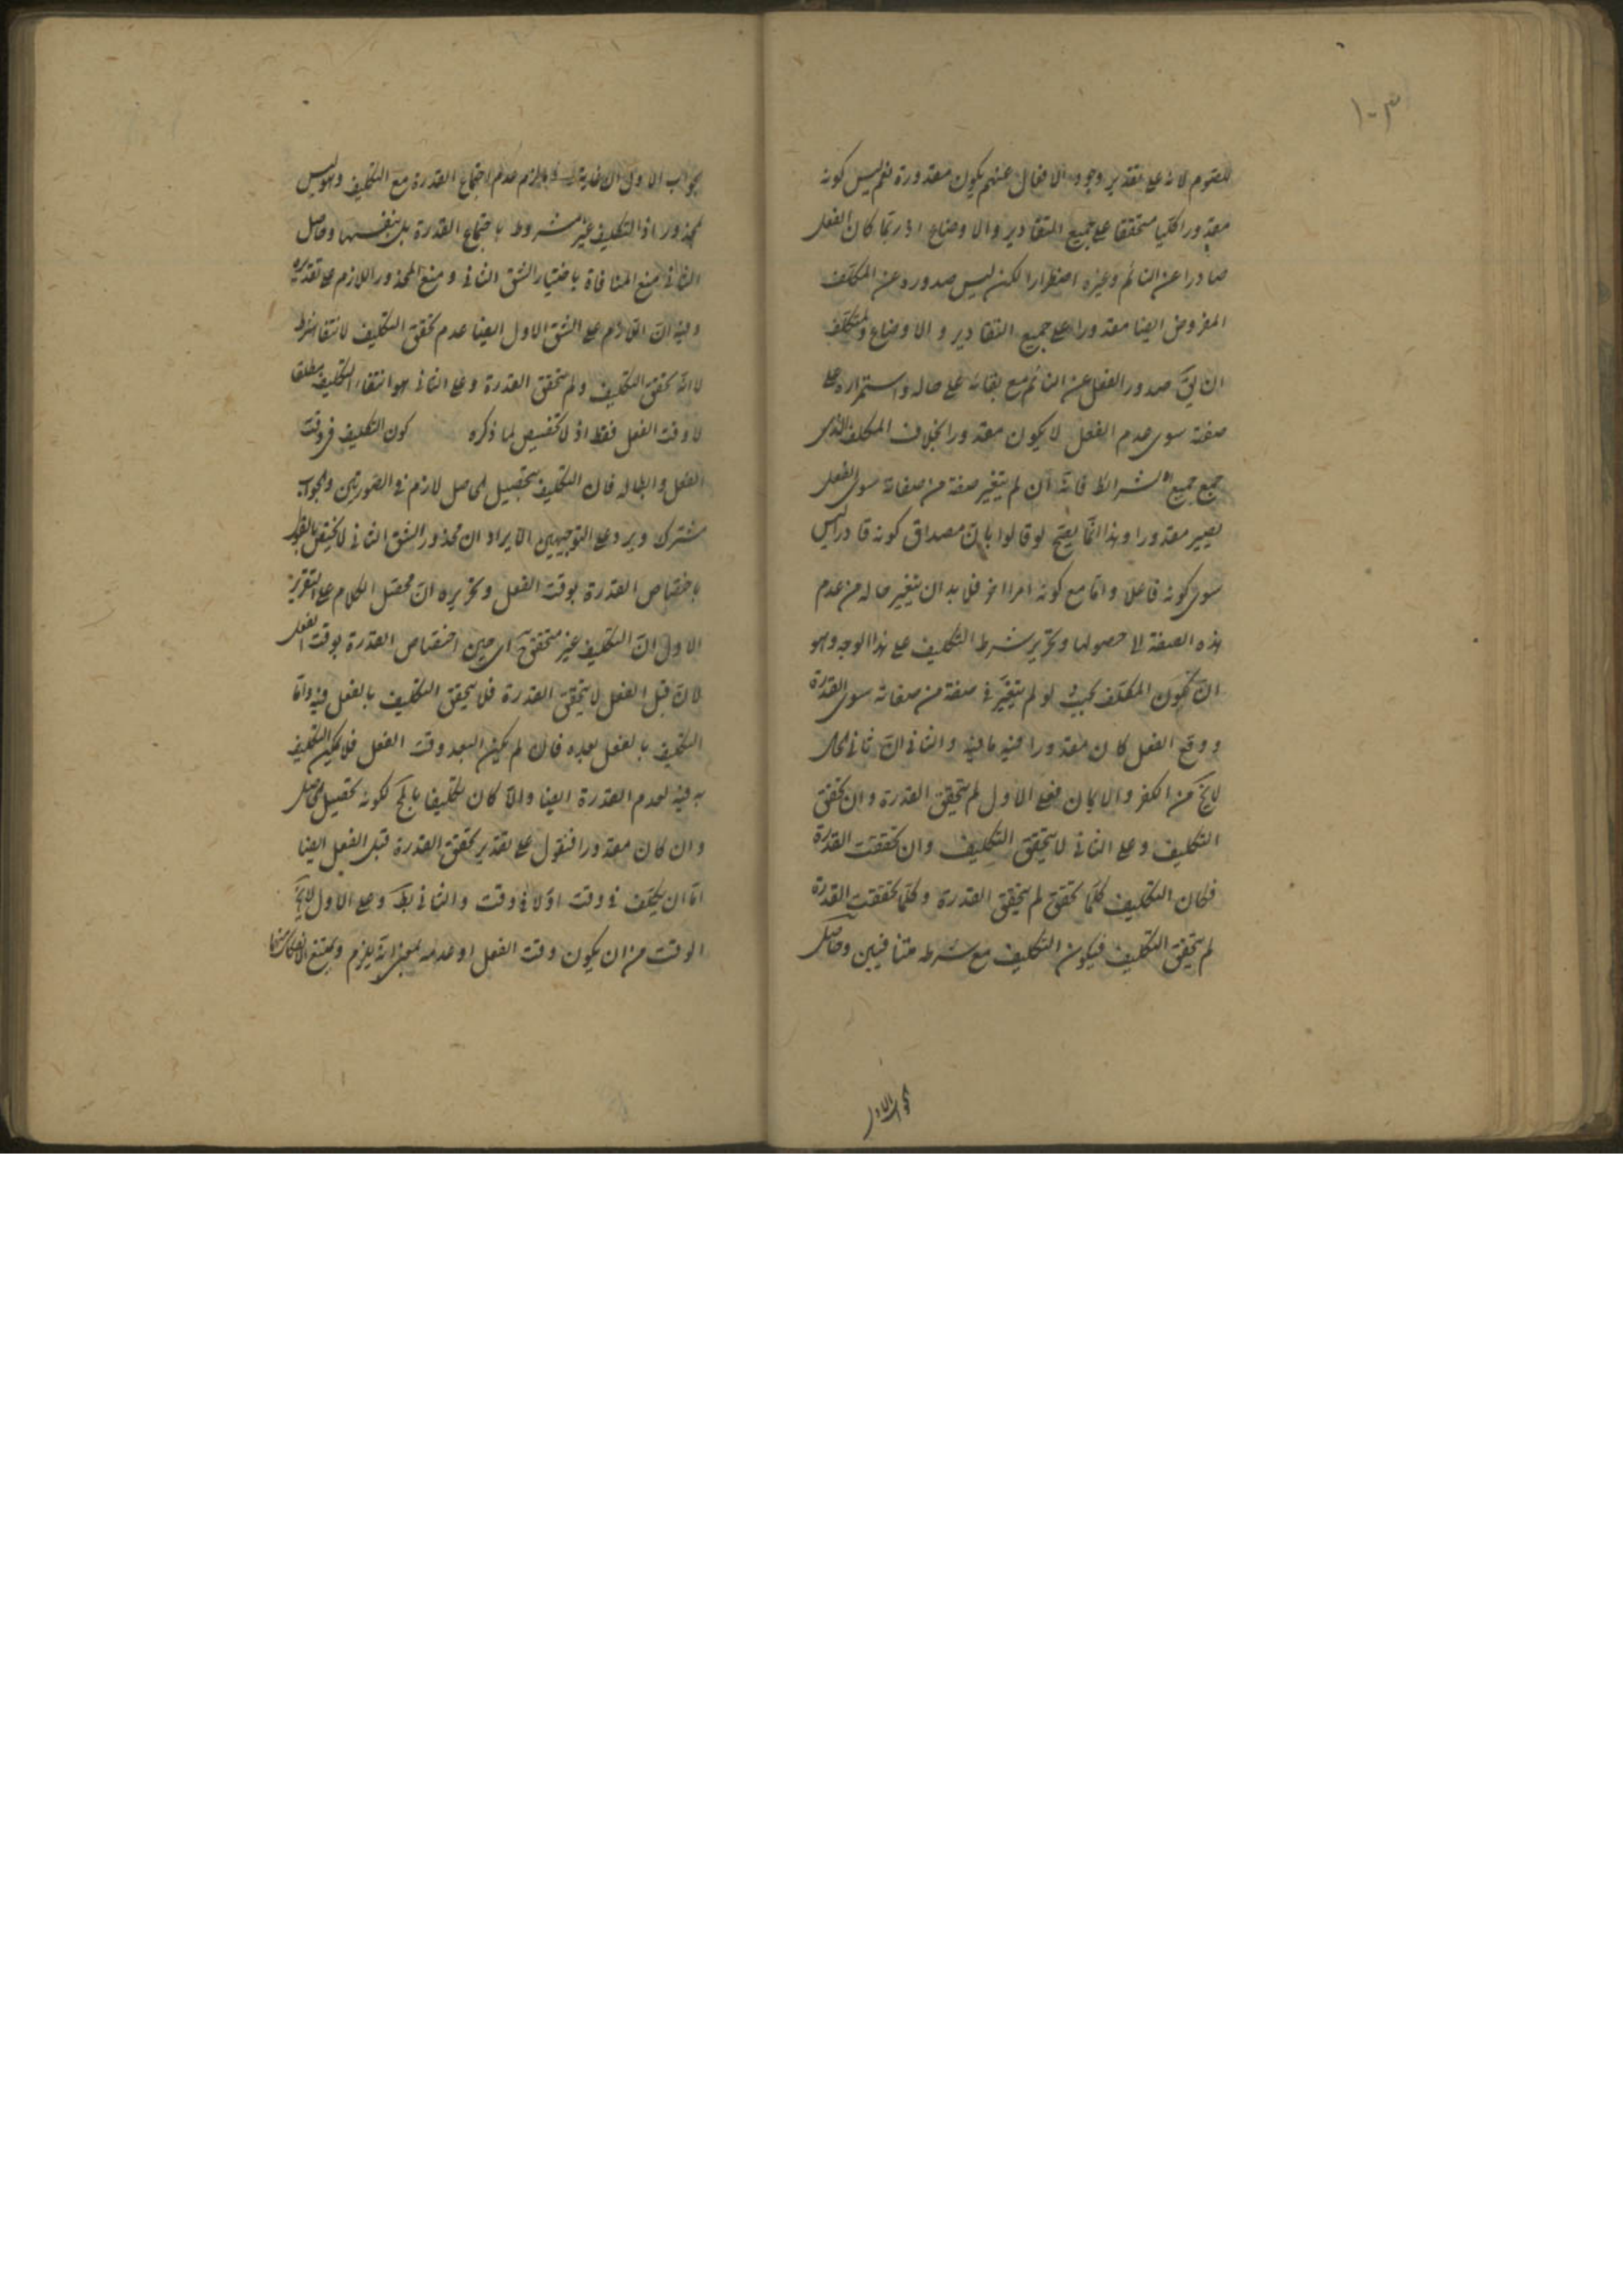 ١٠٣
للصوم لانه على تقدير وجود الافعال عنهم يكون مقدورة نعم ليس كونه
مقدورا كليا متحققا على جميع التقادير والاوضاع اذ ربما كان الفعل
صادرا عن النائم وغيره اضطرارا لكن ليس صدوره عن المكلف
المفروض ايضا مقدورا على جميع التقادير والاوضاع
ان يق صدور الفعل عن النائم مع بقائه على حاله واستمراره على
صفته سوى عدم الفعل لا يكون مقدورا بخلاف المكلف الذى
جمع جميع الشرائط فانه ان لم يتغير صفة من صفاته سوى الفعل
يصير مقدورا وهذا انما يصح لو قالوا بان مصداق كونه قادرا ليس
سوى كونه فاعلا واما مع كونه امرا اخر فلا بد ان يتغير حاله من عدم
هذه الصفة الى حصولها وتحرير شرط التكليف على هذا الوجه وهو
ان يكون المكلف بحيث لو لم يتغير فى صفة من صفاته سوى القدرة
ووقع الفعل كان مقدورا فيه ما فيه والثانى ان
لا يخ من الكفر والايمان فعلى الاول لم يتحقق القدرة وان تحقق
التكليف وعلى الثانى لا يتحقق التكليف وان تحققت القدرة
فكان التكليف كلما تحقق لم يتحقق القدرة وكلما تحققت القدرة
لم يتحقق التكليف فيكون التكليف مع شرطه متنافيين وحاصل
الجواب الاول
الجواب الاول ان غاية ما يلزم عدم اجتماع القدرة مع التكليف وهو ليس
بمحذور اذ التكليف غير مشروط باجتماع القدرة بل بنفسها وحاصل
الثانى منع المنافاة باختيار الشق الثانى ومنع المحذور اللازم على تقديره
وفيه ان اللازم على الشق الاول ايضا عدم تحقق التكليف لانتفا شرطه
لا انه تحقق التكليف ولم يتحقق القدرة وعلى الثانى هو انتفاء التكليف مطلقا
لا وقت الفعل فقط اذ لا تخصيص لما ذكره كون التكليف فى وقت
الفعل وابطاله فان التكليف بتحصيل الحاصل لازم فى الصورتين والجواب
مشترك ويرد على التوجيهين الايراد ان محذور الشق الثانى لا يختص بالقول
باختصاص القدرة بوقت الفعل وتحريره ان محصل الكلام على التقرير
الاول ان التكليف غير متحقق اى حين اختصاص القدرة بوقت الفعل
لان قبل الفعل لا يتحقق القدرة فلا يتحقق التكليف بالفعل فيه واما
التكليف بالفعل بعده فان لم يكن البعد وقت الفعل فلا يمكن التكليف
به فيه لعدم القدرة ايضا والا كان تكليفا بالمح لكونه تحصيل الحاصل
وان كان مقدورا فنقول على تقدير تحقق القدرة قبل الفعل ايضا
اما ان يكلف فى وقت اولا فى وقت والثانى بط وعلى الاول لا يخ
الوقت من ان يكون وقت الفعل او عدمه بمعنى انه يلزم ويمتنع